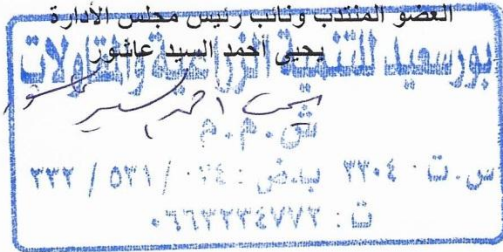 العضو المنتدب ونائب رئيس مجلس الادارة
يحيى احمد السيد عاشور
بورسعيد للتنمية الزراعية والمقاولات
ش.م.م
س.ت: ٣٣٠٤ ب.ض: ٠٢٤ / ٥٣١ / ٢٣٢
ت: ٠٦٦٣٢٢٤٧٧٢